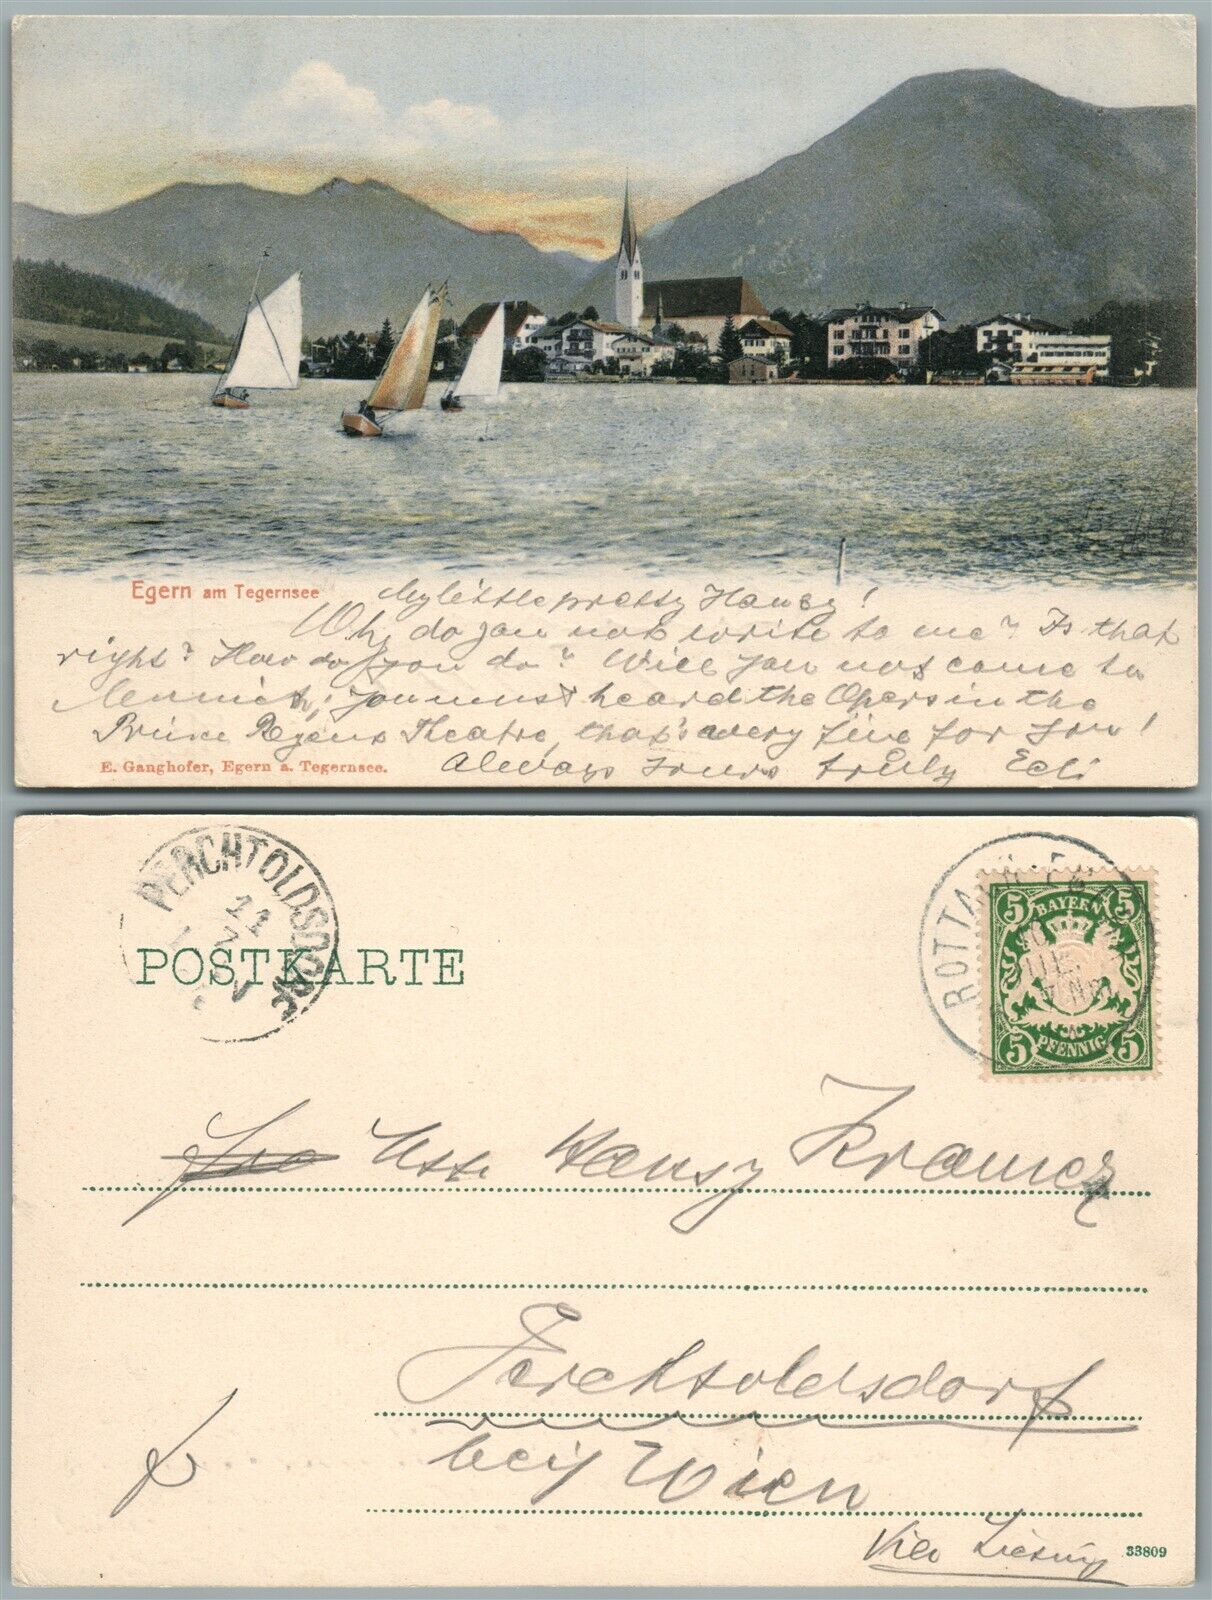 Egern am Tegernsee
My little pretty Hansy!
Why do you not write to me? Is that
right? How do you do? Will you not come to
Munich; you must heard the Opers in the
Prinz Regens Theatre, that's avery fine for you!
E. Ganghofer, Egern a. Tegernsee.
Always yours truly Edi
PERCHTOLDSDORF
11
7
V
POSTKARTE
ROTTACH-EGERN
5 BAYERN 5
5 PFENNIG 5
Hansy Kramer
Perchtoldsdorf
bei Wien
Via Liesing
33809